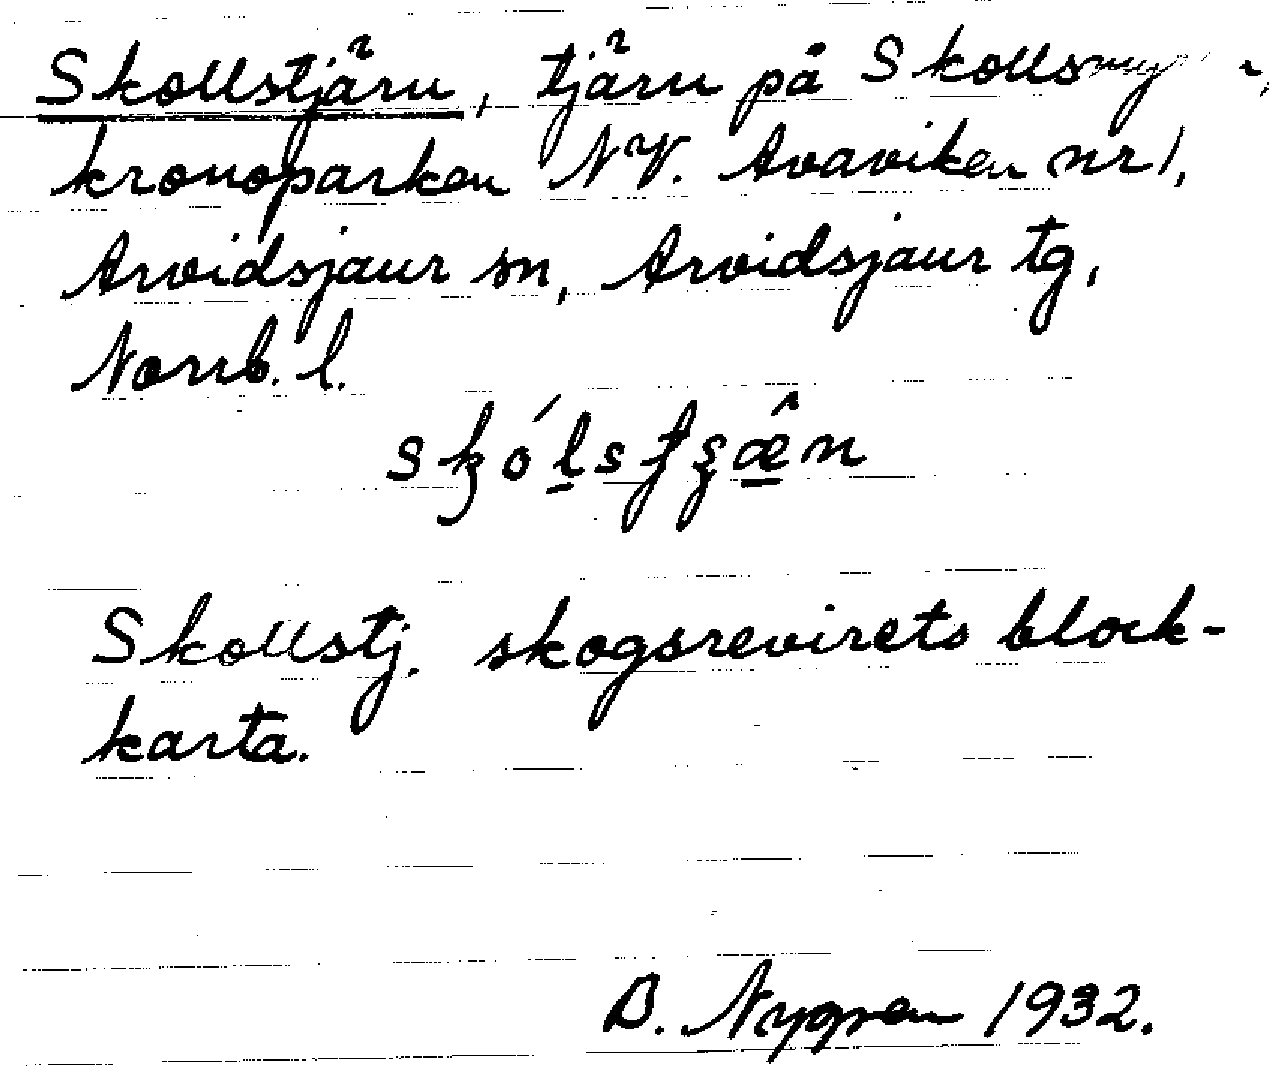 Skollstjärn, tjärn på Skollsmyran,
kronoparken NV. Avaviken nr 1,
Arvidsjaur sn, Arvidsjaur tg,
Norrb. l.
Skollstj. skogsrevirets block-
karta.
B. Nygren 1932.